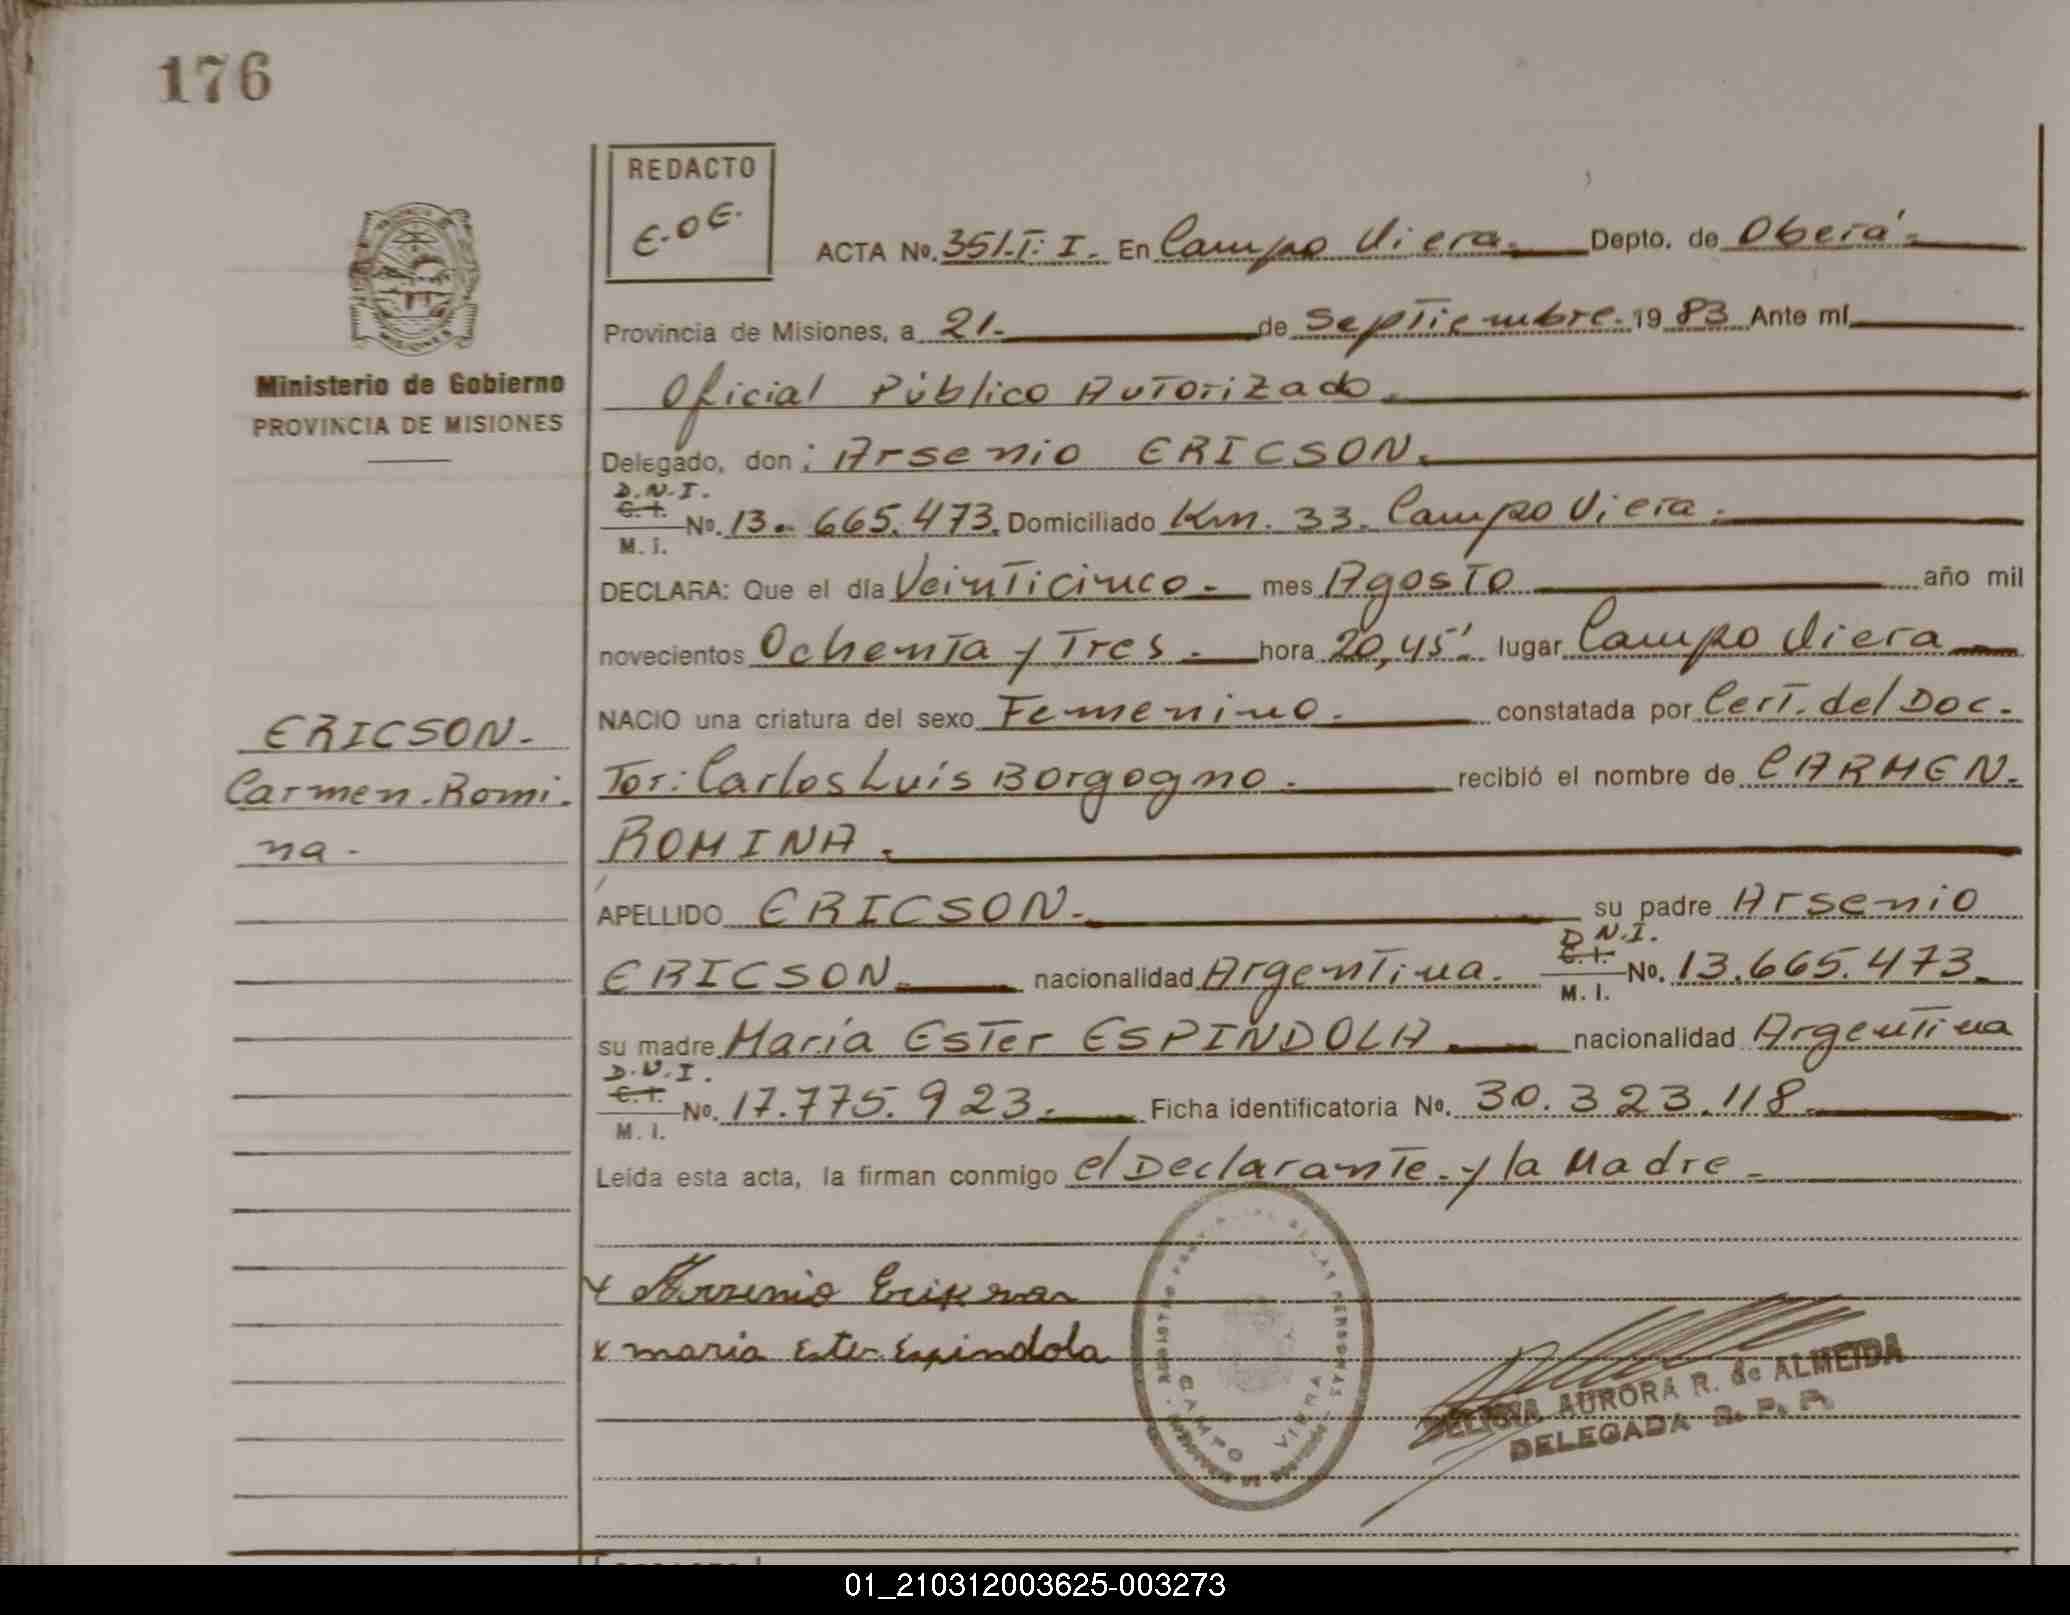 176
REDACTO
E.O.E.
ACTA No. 351.T: I. En Campo Viera. Depto. de Oberá.
Provincia de Misiones, a 21. de Septiembre. 19 83 Ante mí
Oficial Público Autorizado.
Ministerio de Gobierno
PROVINCIA DE MISIONES
Delegado, don: Arsenio ERICSON.
D.N.I.
C.I.
No. 13. 665.473. Domiciliado Km. 33. Campo Viera.
M. I.
DECLARA: Que el día Veinticinco. mes Agosto año mil
novecientos Ochenta y Tres. hora 20,45'. lugar Campo Viera
NACIO una criatura del sexo Femenino. constatada por Cert. del Doc.
Tor: Carlos Luis Borgogno. recibió el nombre de CARMEN.
ROMINA.
ERICSON.
Carmen. Romi.
na.
APELLIDO ERICSON. su padre Arsenio
D.N.I.
C.I.
ERICSON. nacionalidad Argentina. No. 13.665.473.
M. I.
su madre María Ester ESPINDOLA. nacionalidad Argentina
D.N.I.
C.I.
No. 17.775.923. Ficha identificatoria No. 30.323.118.
M. I.
Leída esta acta, la firman conmigo el Declarante. y la Madre.
x Arsenio Erikson
x maria Ester Espindola
CAMPO VIERA
AURORA R. de ALMEIDA
DELEGADA R. P. P.
01_210312003625-003273